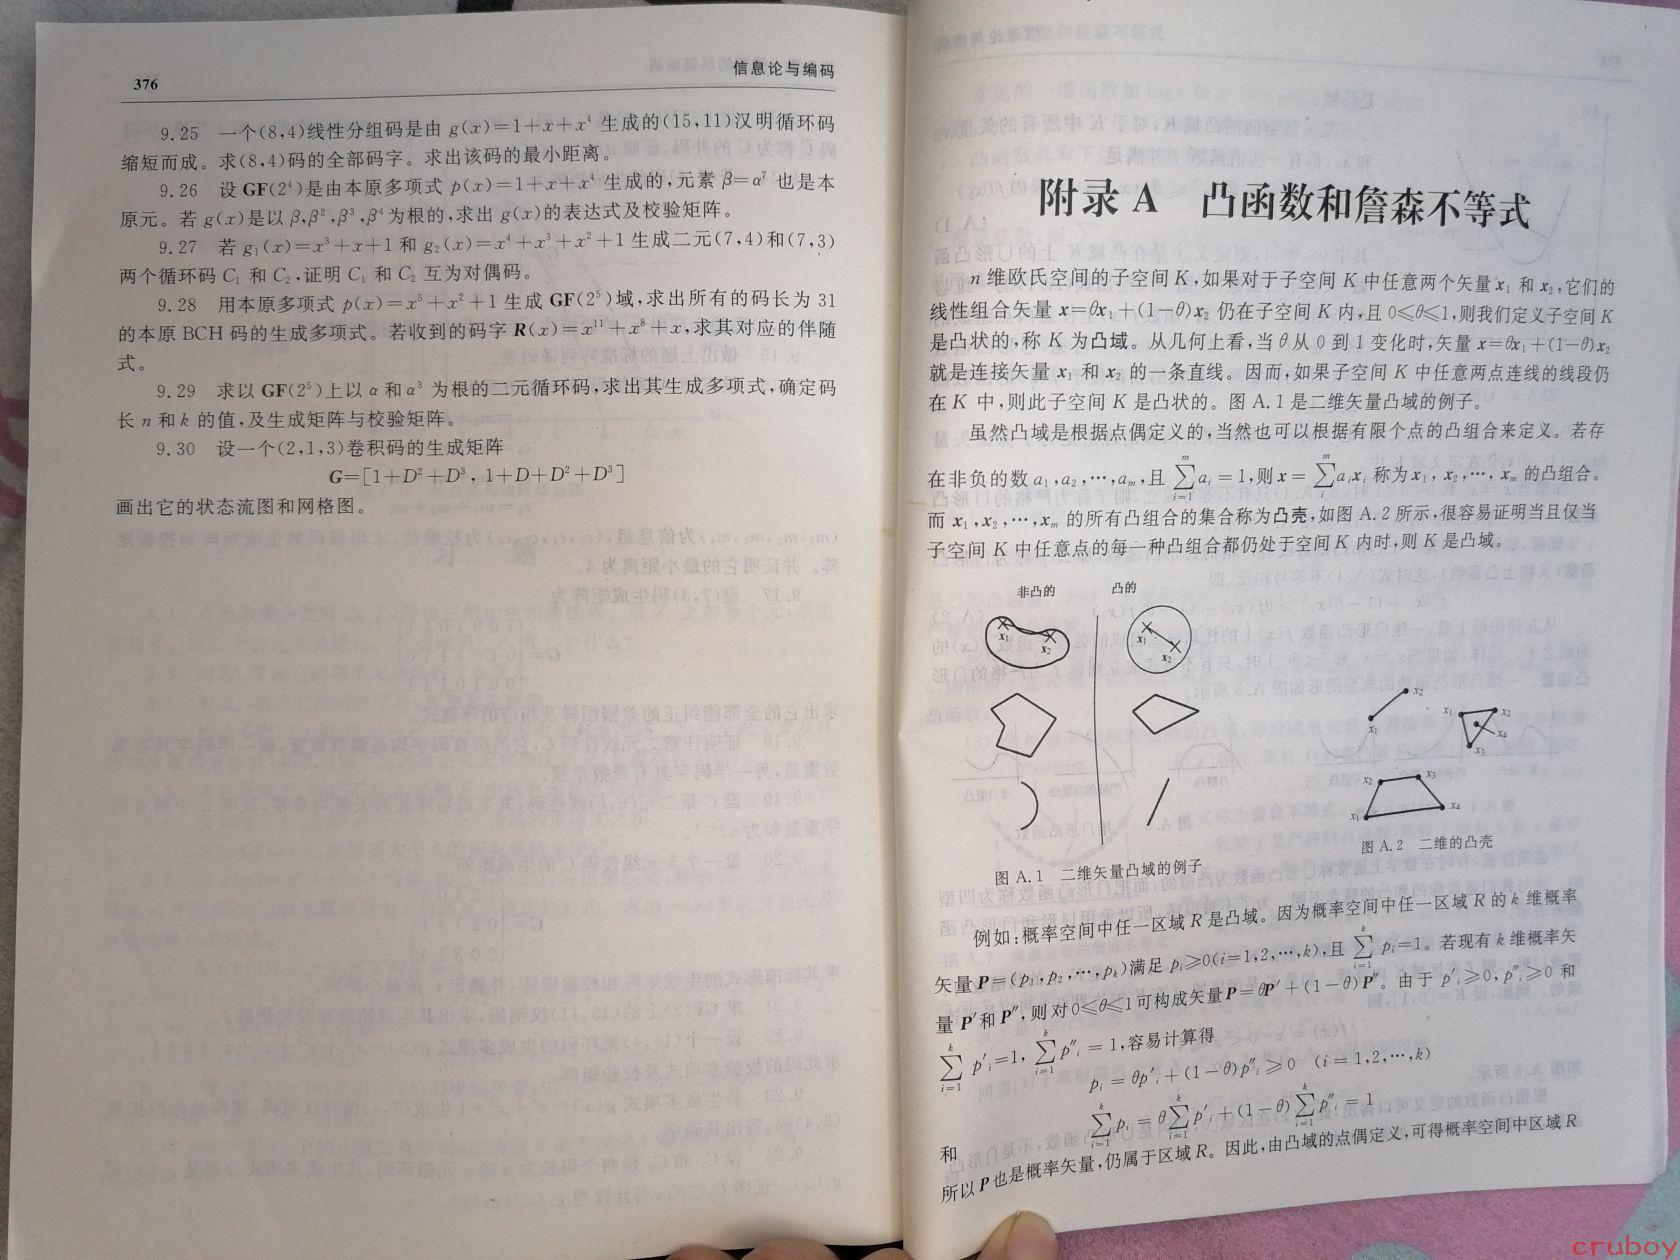 376
信息论与编码
9.25 一个(8,4)线性分组码是由 g(x)=1+x+x⁴ 生成的(15,11)汉明循环码
缩短而成。求(8,4)码的全部码字。求出该码的最小距离。
9.26 设 GF(2⁴)是由本原多项式 p(x)=1+x+x⁴ 生成的,元素 β=α⁷ 也是本
原元。若 g(x)是以 β,β²,β³,β⁴为根的,求出 g(x)的表达式及校验矩阵。
9.27 若 g₁(x)=x³+x+1 和 g₂(x)=x⁴+x³+x²+1 生成二元(7,4)和(7,3)
两个循环码 C₁ 和 C₂,证明 C₁ 和 C₂ 互为对偶码。
9.28 用本原多项式 p(x)=x⁵+x²+1 生成 GF(2⁵)域,求出所有的码长为 31
的本原 BCH 码的生成多项式。若收到的码字 R(x)=x¹¹+x⁸+x,求其对应的伴随
式。
9.29 求以 GF(2⁵)上以 α 和 α³ 为根的二元循环码,求出其生成多项式,确定码
长 n 和 k 的值,及生成矩阵与校验矩阵。
9.30 设一个(2,1,3)卷积码的生成矩阵
G=[1+D²+D³, 1+D+D²+D³]
画出它的状态流图和网格图。
附录 A 凸函数和詹森不等式
n 维欧氏空间的子空间 K,如果对于子空间 K 中任意两个矢量 x₁ 和 x₂,它们的
线性组合矢量 x=θx₁+(1-θ)x₂ 仍在子空间 K 内,且 0≤θ≤1,则我们定义子空间 K
是凸状的,称 K 为凸域。从几何上看,当 θ 从 0 到 1 变化时,矢量 x=θx₁+(1-θ)x₂
就是连接矢量 x₁ 和 x₂ 的一条直线。因而,如果子空间 K 中任意两点连线的线段仍
在 K 中,则此子空间 K 是凸状的。图 A.1 是二维矢量凸域的例子。
虽然凸域是根据点偶定义的,当然也可以根据有限个点的凸组合来定义。若存
在非负的数 a₁,a₂,…,aₘ,且 ∑ᵢ₌₁ᵐ aᵢ=1,则 x=∑ᵢᵐ aᵢxᵢ 称为 x₁,x₂,…,xₘ 的凸组合。
而 x₁,x₂,…,xₘ 的所有凸组合的集合称为凸壳,如图 A.2 所示,很容易证明当且仅当
子空间 K 中任意点的每一种凸组合都仍处于空间 K 内时,则 K 是凸域。
非凸的 凸的
x₁ x₂ x₁ x₂
x₂ x₁
x₁ x₂ x₃ x₄
x₂ x₃ x₁ x₄
图 A.1 二维矢量凸域的例子
图 A.2 二维的凸壳
例如:概率空间中任一区域 R 是凸域。因为概率空间中任一区域 R 的 k 维概率
矢量 P=(p₁,p₂,…,pₖ)满足 pᵢ≥0(i=1,2,…,k),且 ∑ᵢ₌₁ᵏ pᵢ=1。若现有 k 维概率矢
量 P′和 P″,则对 0≤θ≤1可构成矢量P=θP′+(1-θ)P″。由于 p′ᵢ≥0,p″ᵢ≥0 和
∑ᵢ₌₁ᵏ p′ᵢ=1, ∑ᵢ₌₁ᵏ p″ᵢ=1,容易计算得
pᵢ=θp′ᵢ+(1-θ)p″ᵢ≥0 (i=1,2,…,k)
和
∑ᵢ₌₁ᵏ pᵢ=θ∑ᵢ₌₁ᵏ p′ᵢ+(1-θ)∑ᵢ₌₁ᵏ p″ᵢ=1
所以 P 也是概率矢量,仍属于区域 R。因此,由凸域的点偶定义,可得概率空间中区域 R
cruboy